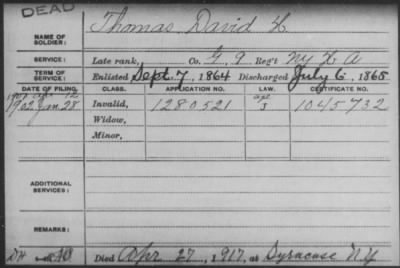 DEAD
NAME OF SOLDIER: Thomas David H
SERVICE: Late rank, Co. G, 9 Reg't NY H A
TERM OF SERVICE: Enlisted Sept. 7, 1864 Discharged July 6, 1865
DATE OF FILING. CLASS. APPLICATION NO. LAW. CERTIFICATE NO.
12
1902 Jan. 28 Invalid, 1280521 1045732
Widow,
Minor,
ADDITIONAL SERVICES:
REMARKS:
Died Apr 27, 1917, at Syracuse N.Y.